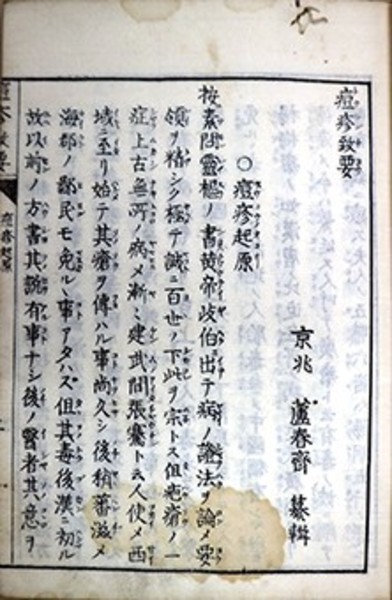 痘疹致要
京兆 蘆春齋 纂輯
○痘疹起原
按素問靈樞ノ書黄帝歧伯出テ病ノ證法ヲ論メ要
領ヲ精シク極テ誠ニ百世ノ下此ヲ宗トス但疱瘡ノ一
症上古無所ノ病メ漸ニ建武間張騫ト云人使メ西
域ニ至リ始テ其瘡ヲ傳ハル事尚久シ後稍蕃滋メ
海郡ノ鄙民モ免ル事アタハズ但其毒後漢ニ初ル
故以前ノ方書其説有事ナシ後ノ醫者其意ヲ
痘疹致要
痘疹起原